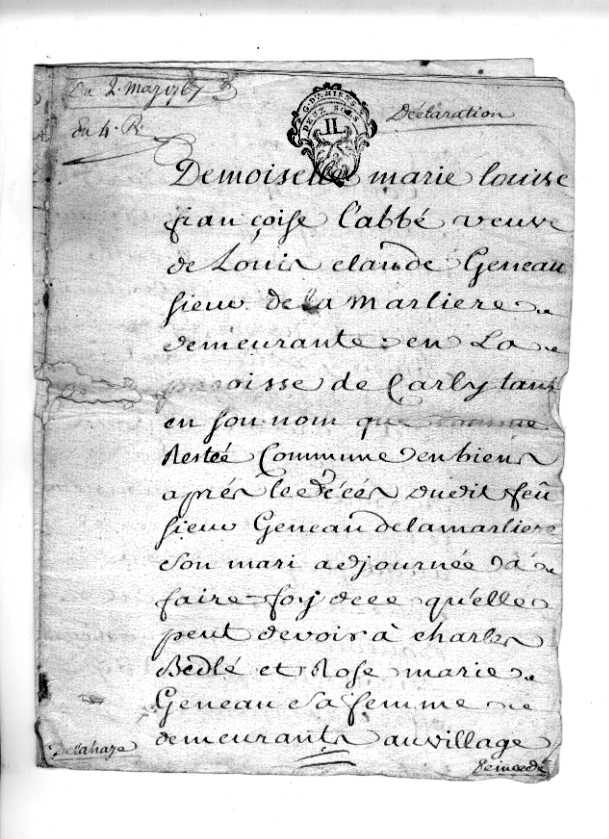 Du 2. may 1767
En 4. R.
G. D'AMIENS
DEUX SOLS
II
Déclaration
Demoiselle marie louise
françoise l'abbé veuve
de Louis claude Geneau
sieur de la marliere
demeurante en La
paroisse de Carly tant
en son nom que comme
Restée Commune en biens
aprés le décés dudit feû
sieur Geneau delamarliere
son mari adjournée dá
faire foy dece qu'elle
peut devoir à charles
Bedlé et Rose marie
Geneau sa femme
demeurants au village
Delahaye